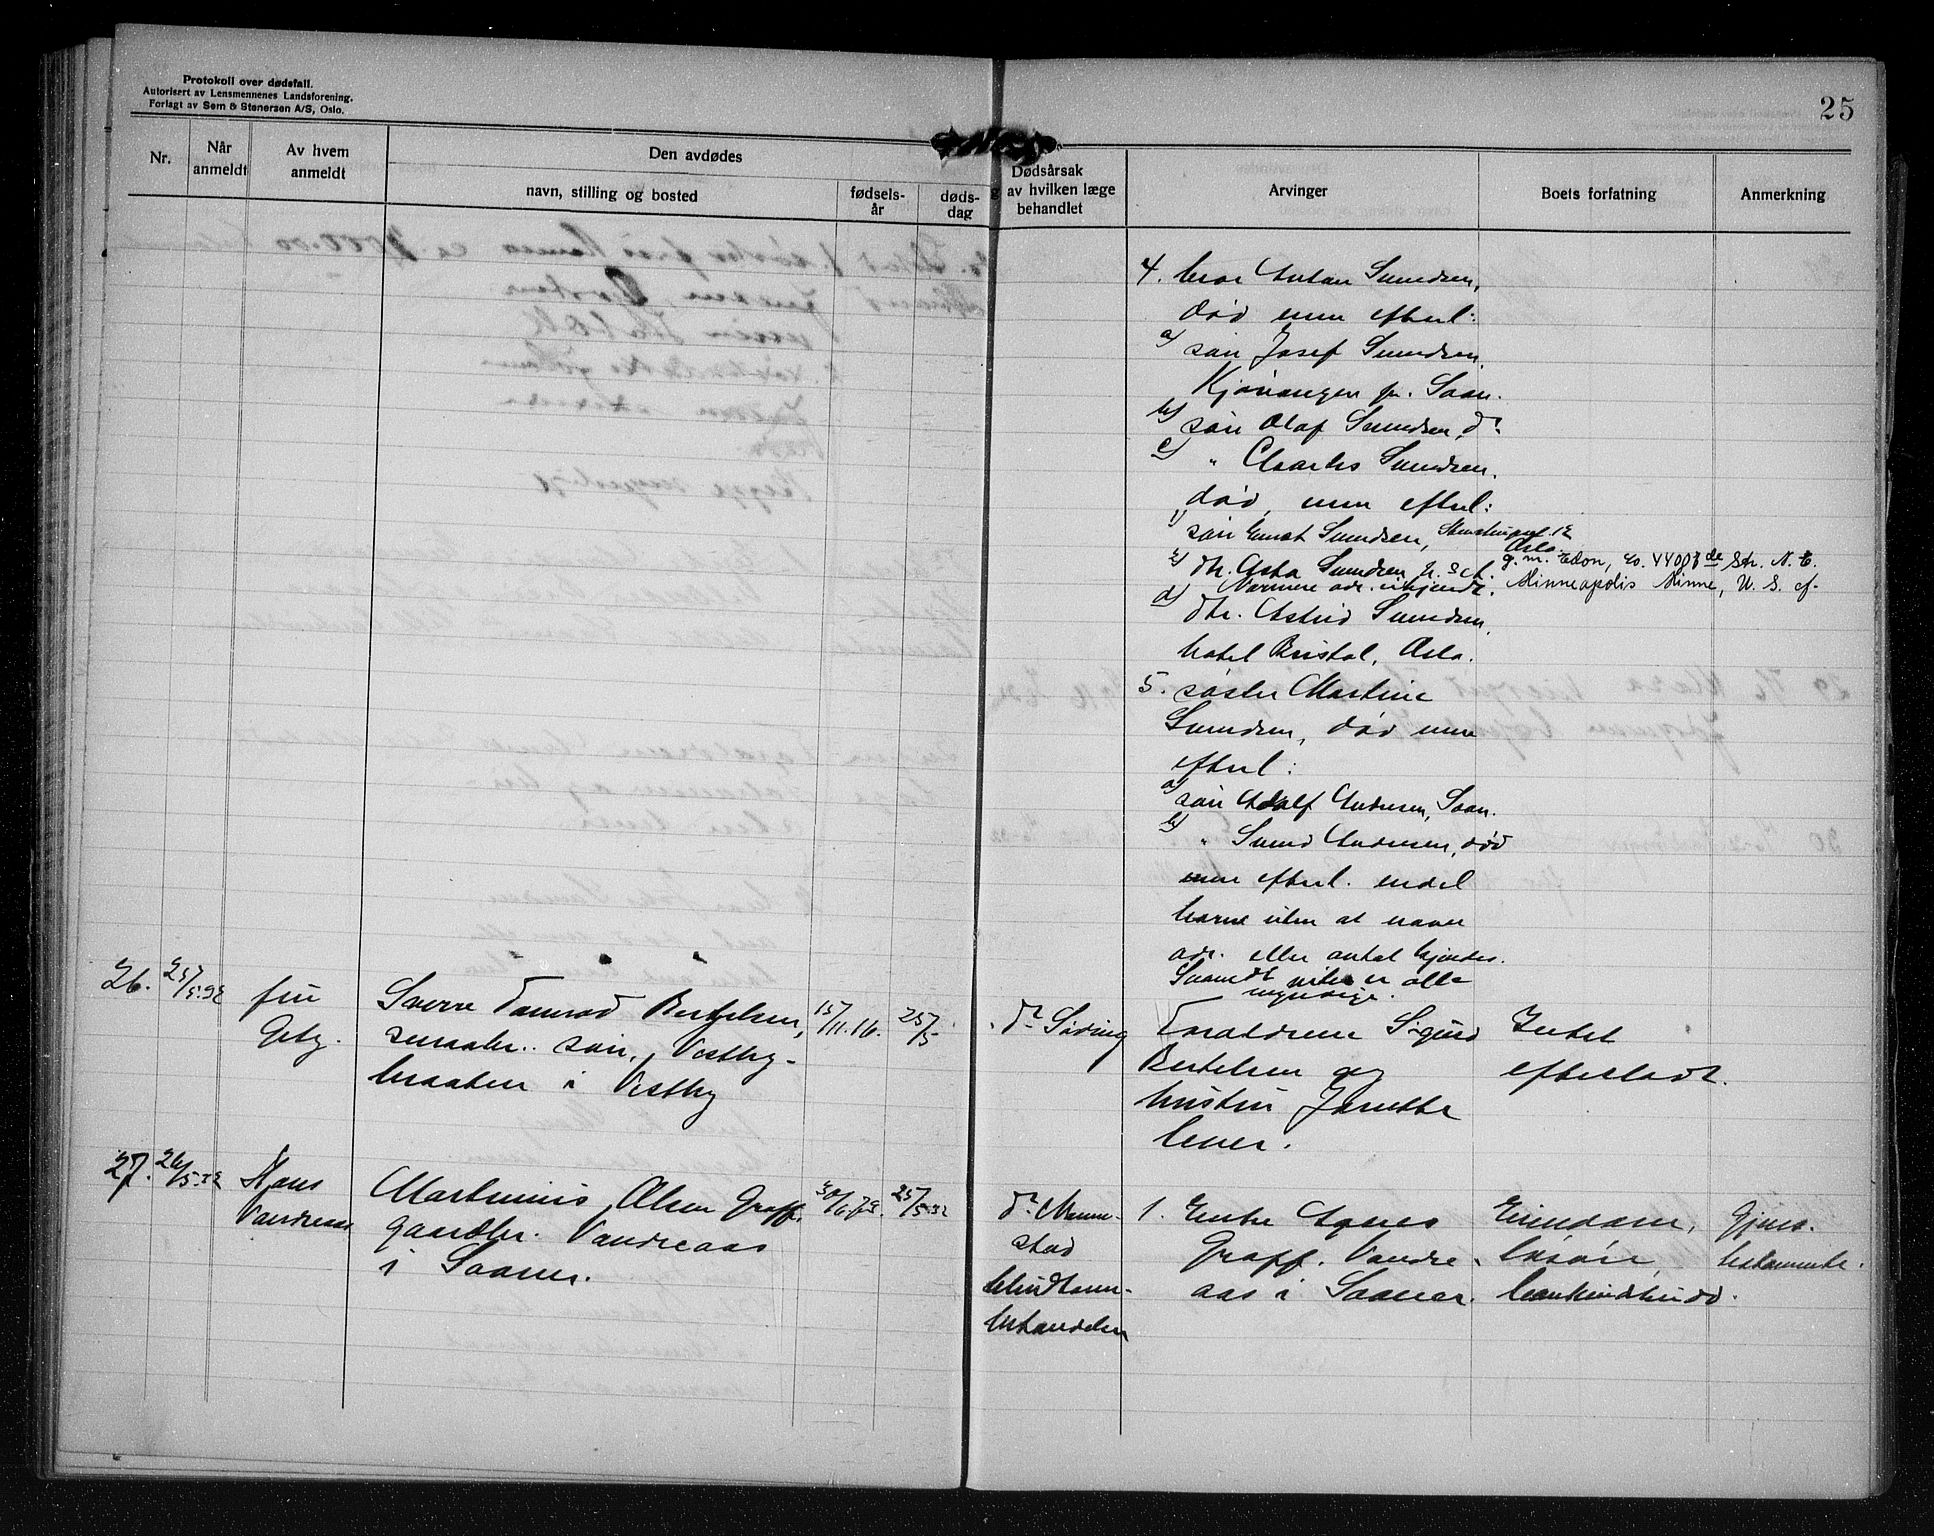 Protokoll over dødsfall.
Autorisert av Lensmennenes Landsforening.
Forlagt av Sem & Stenersen A/S, Oslo.
25
Nr.
Når anmeldt
Av hvem anmeldt
Den avdødes
navn, stilling og bosted
fødsels-
år
døds-
dag
Dødsårsak
av hvilken læge
behandlet
Arvinger
Boets forfatning
Anmerkning
4. bror Anton Svendsen,
død men efterl:
a) søn Josef Svendsen
Kjøvangen pr. Soon.
b) søn Olaf Svendsen, do
c) " Charles Svendsen.
død, men efterl:
1) søn Ernst Svendsen,
Oslo.
2) dtr. Asta Svendsen U.S.A. g.m. Edon, 44 Str. N. E.
Nærmere adr. ukjendt. Minneapolis Minne, U. S. A.
d) dtr. Astrid Svendsen,
hotel Bristol, Oslo.
5. søster Martine
Svendsen, død men
efterl:
a) søn Adolf Andersen, Soon.
b) " Svend Andersen, død
men efterl. endel
barne uten at navn
adr. eller antal kjendes.
Svendt vites er alle
myndige.
26. 25/5.32
fru
Getz.
Sverre Bertelsen,
15/11.16. 25/5
smaabr. søn, Vestby-
braaten i Vestby
dr Søring
Forældrene Sigurd
Bertelsen og
hustru Janette
lever.
Intet
efterladt.
27. 26/5.32
Hans
Vandreaas
Martinius Olsen Graff,
gaardbr. Vandreaas
i Sooner.
25/5.32
dr
stad
behandelen
1. Enke Agnes
Graff. Vandre-
aas i Sooner.
Eiendom,
løsøre,
bankindskudd.
Gjens.
testamente.